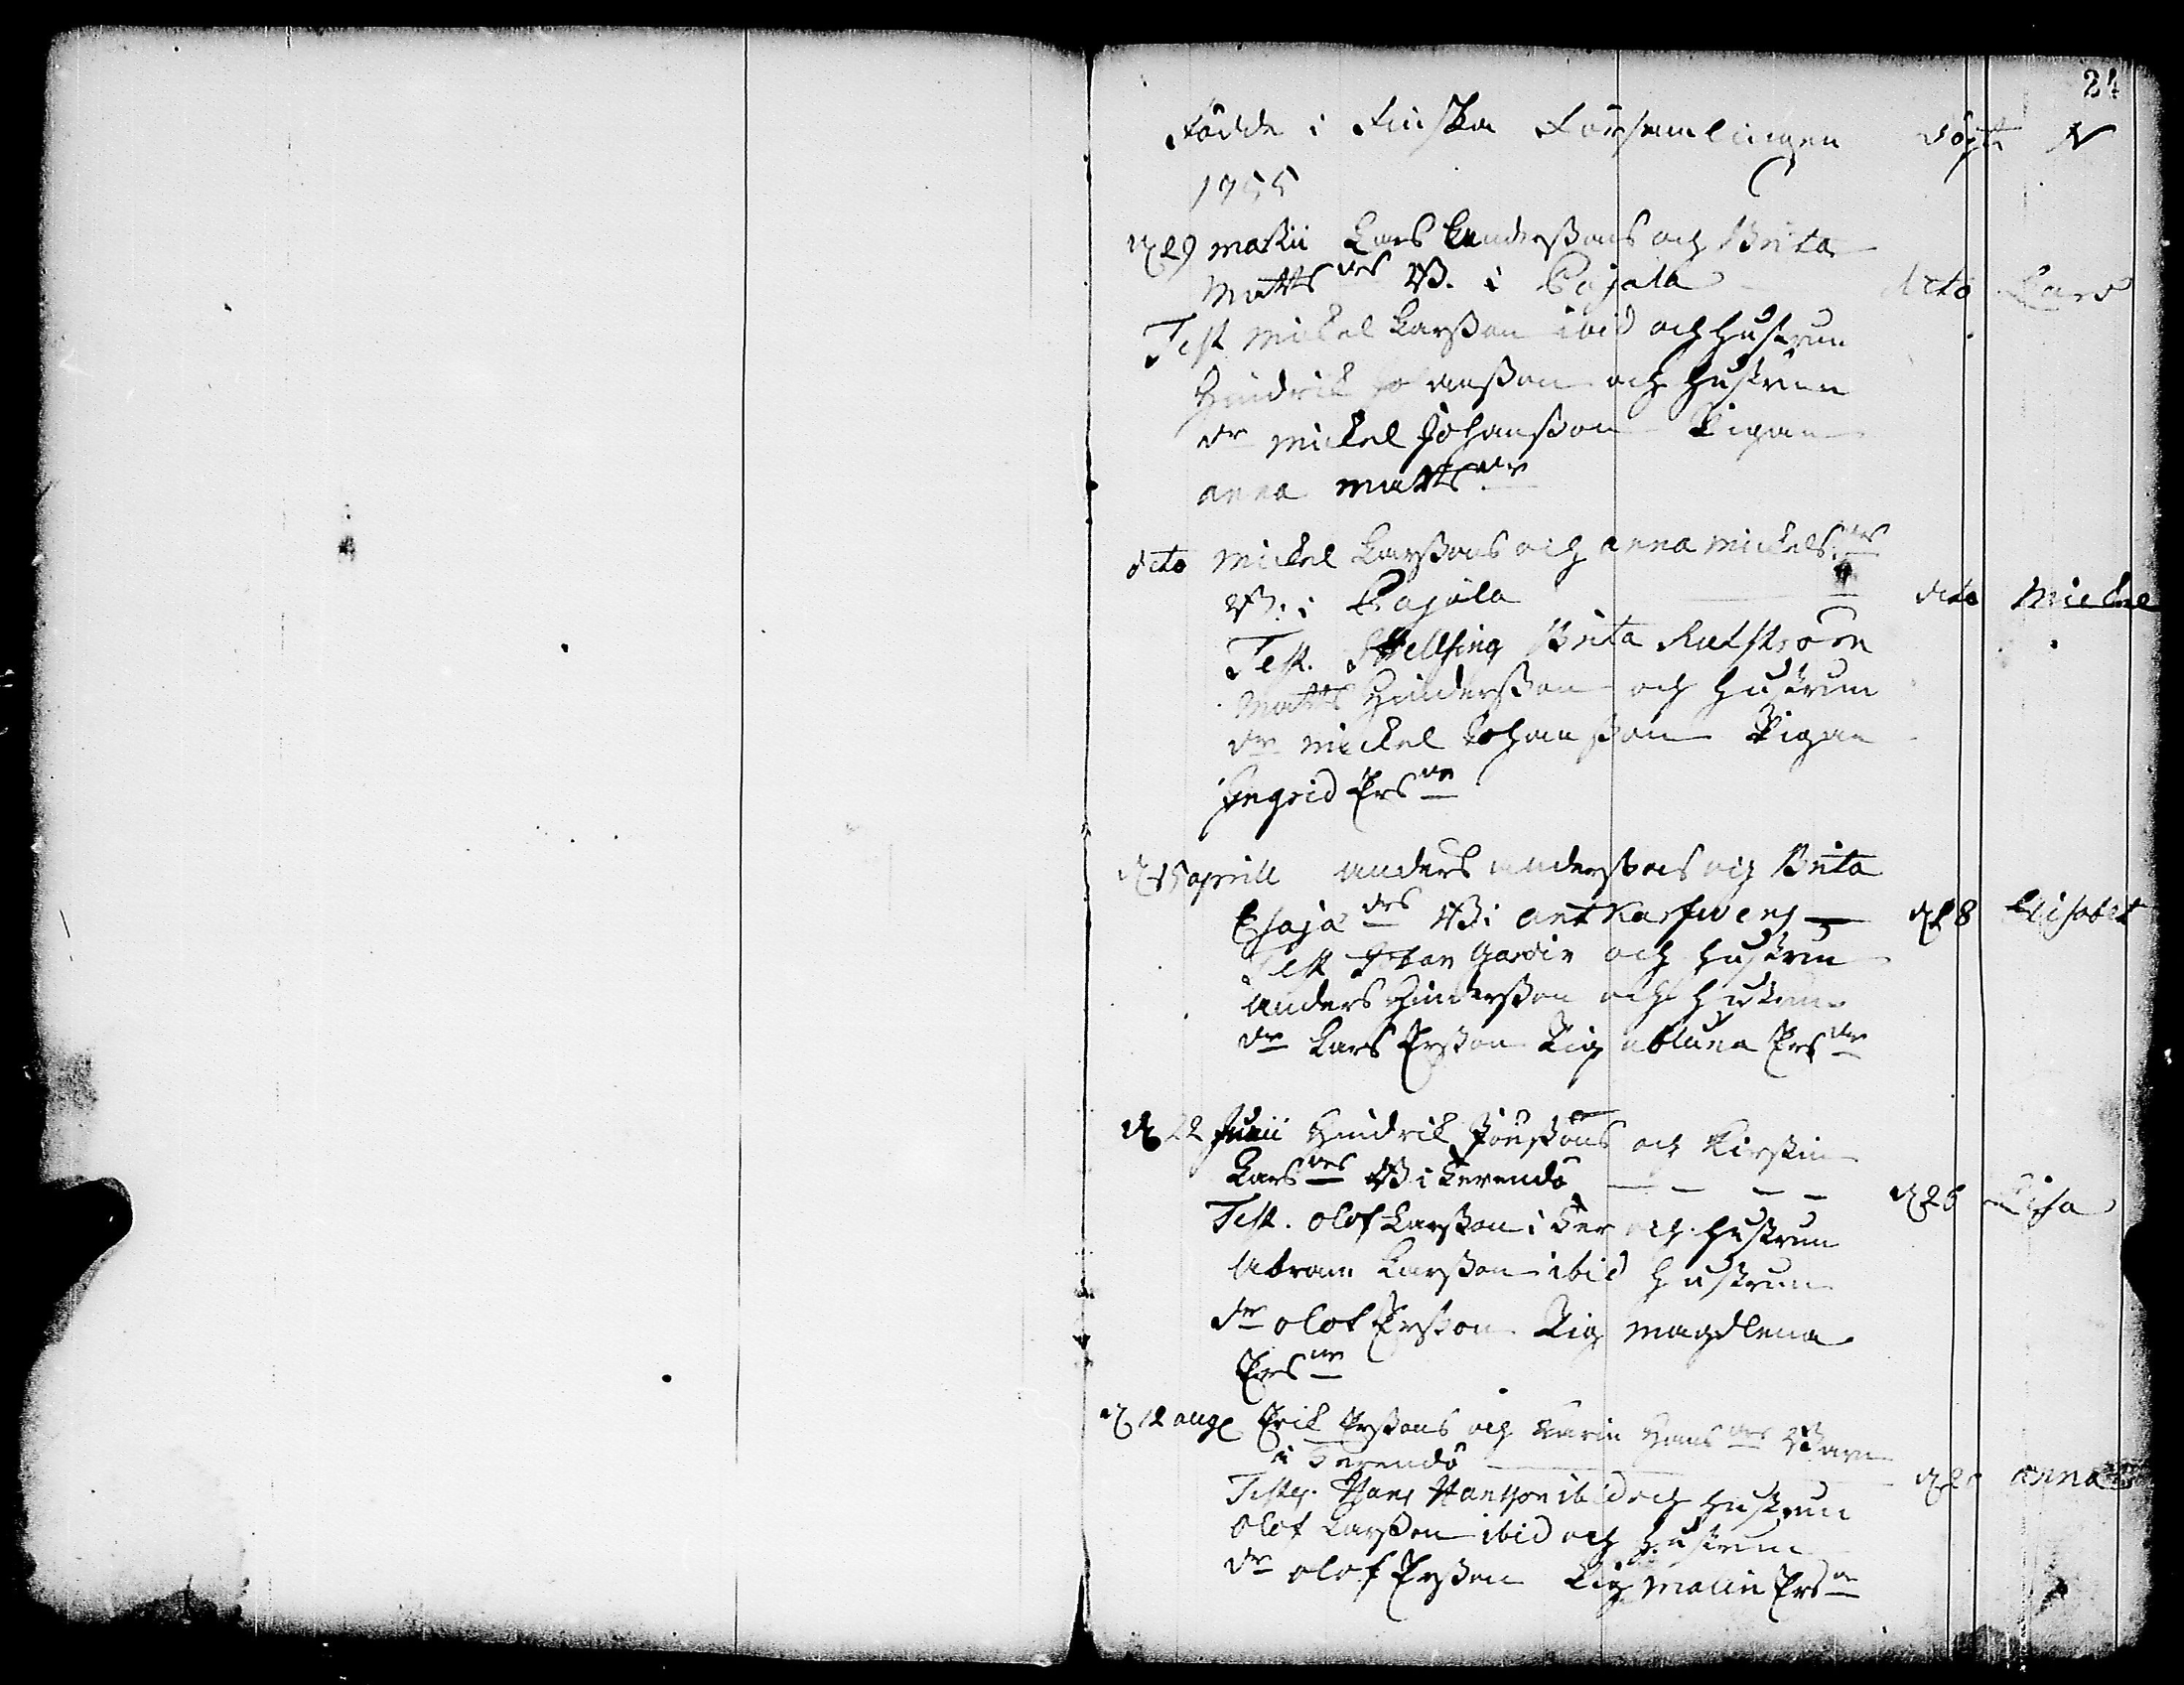 24
Födde i Finska Församlingen döpt N
1755
d 29 Martii Lars Anderssons och Brita
Matts drs B. i Pajala dito Lars
Test Mickel Larsson ibid och hustrun
Hindrik Johansson och hustrun
dr Mickel Johansson Pigan
anna Matts dr
dito Mickel Larssons och anna Mickels drs
B. i Pajala dito Mickel
Test. Hellsing Brita Rutström
Matts Hindersson och hustrun
dr Mickel Johansson Pigan
Ingrid Ers dr
d 15 aprill anders anderssons och Brita
Esajæ drs B i d 18 Elisabet
Test Johan Gardin och hustrun
anders Hindersson och hustrun
dr Lars Ersson Pig Ers dr
d 22 Junii Hindrik Jönssons och Kirstin
Lars drs B i Terendö d 26 Lisa
Test. Olof Larsson i Ter och hustrun
Abram Larsson ibid hustrun
dr Olof Ersson Pig Magdlena
Ers dr
d 12 aug Erik Erssons och Karin Hans drs Barn
i Terendö anna
Test. Hans Hansson ibid och hustrun
Olof Larsson ibid och hustrun
dr Olof Ersson Pig Malin Ers dr